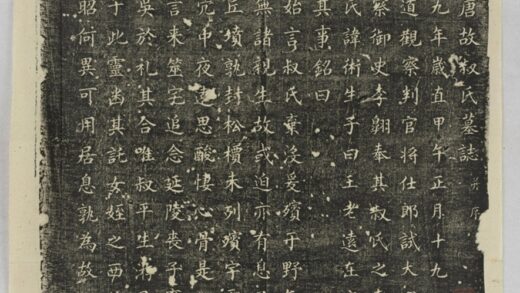 唐故叔氏墓誌并序
九年歲直甲午正月十九
道觀察判官将仕郎試大
察御史李翱奉其叔氏之
氏諱術生子曰王老遠在
其事銘曰
始言叔氏棄没爰殯于野
無諸親生故或迫亦有息
丘墳孰封松檟未列殯宇
中夜遠思酸悽心骨是
言来筮宅追念延陵喪子
吴於礼其合唯叔平生
于此靈幽其託女姪之西
昭何異可用居息孰為故